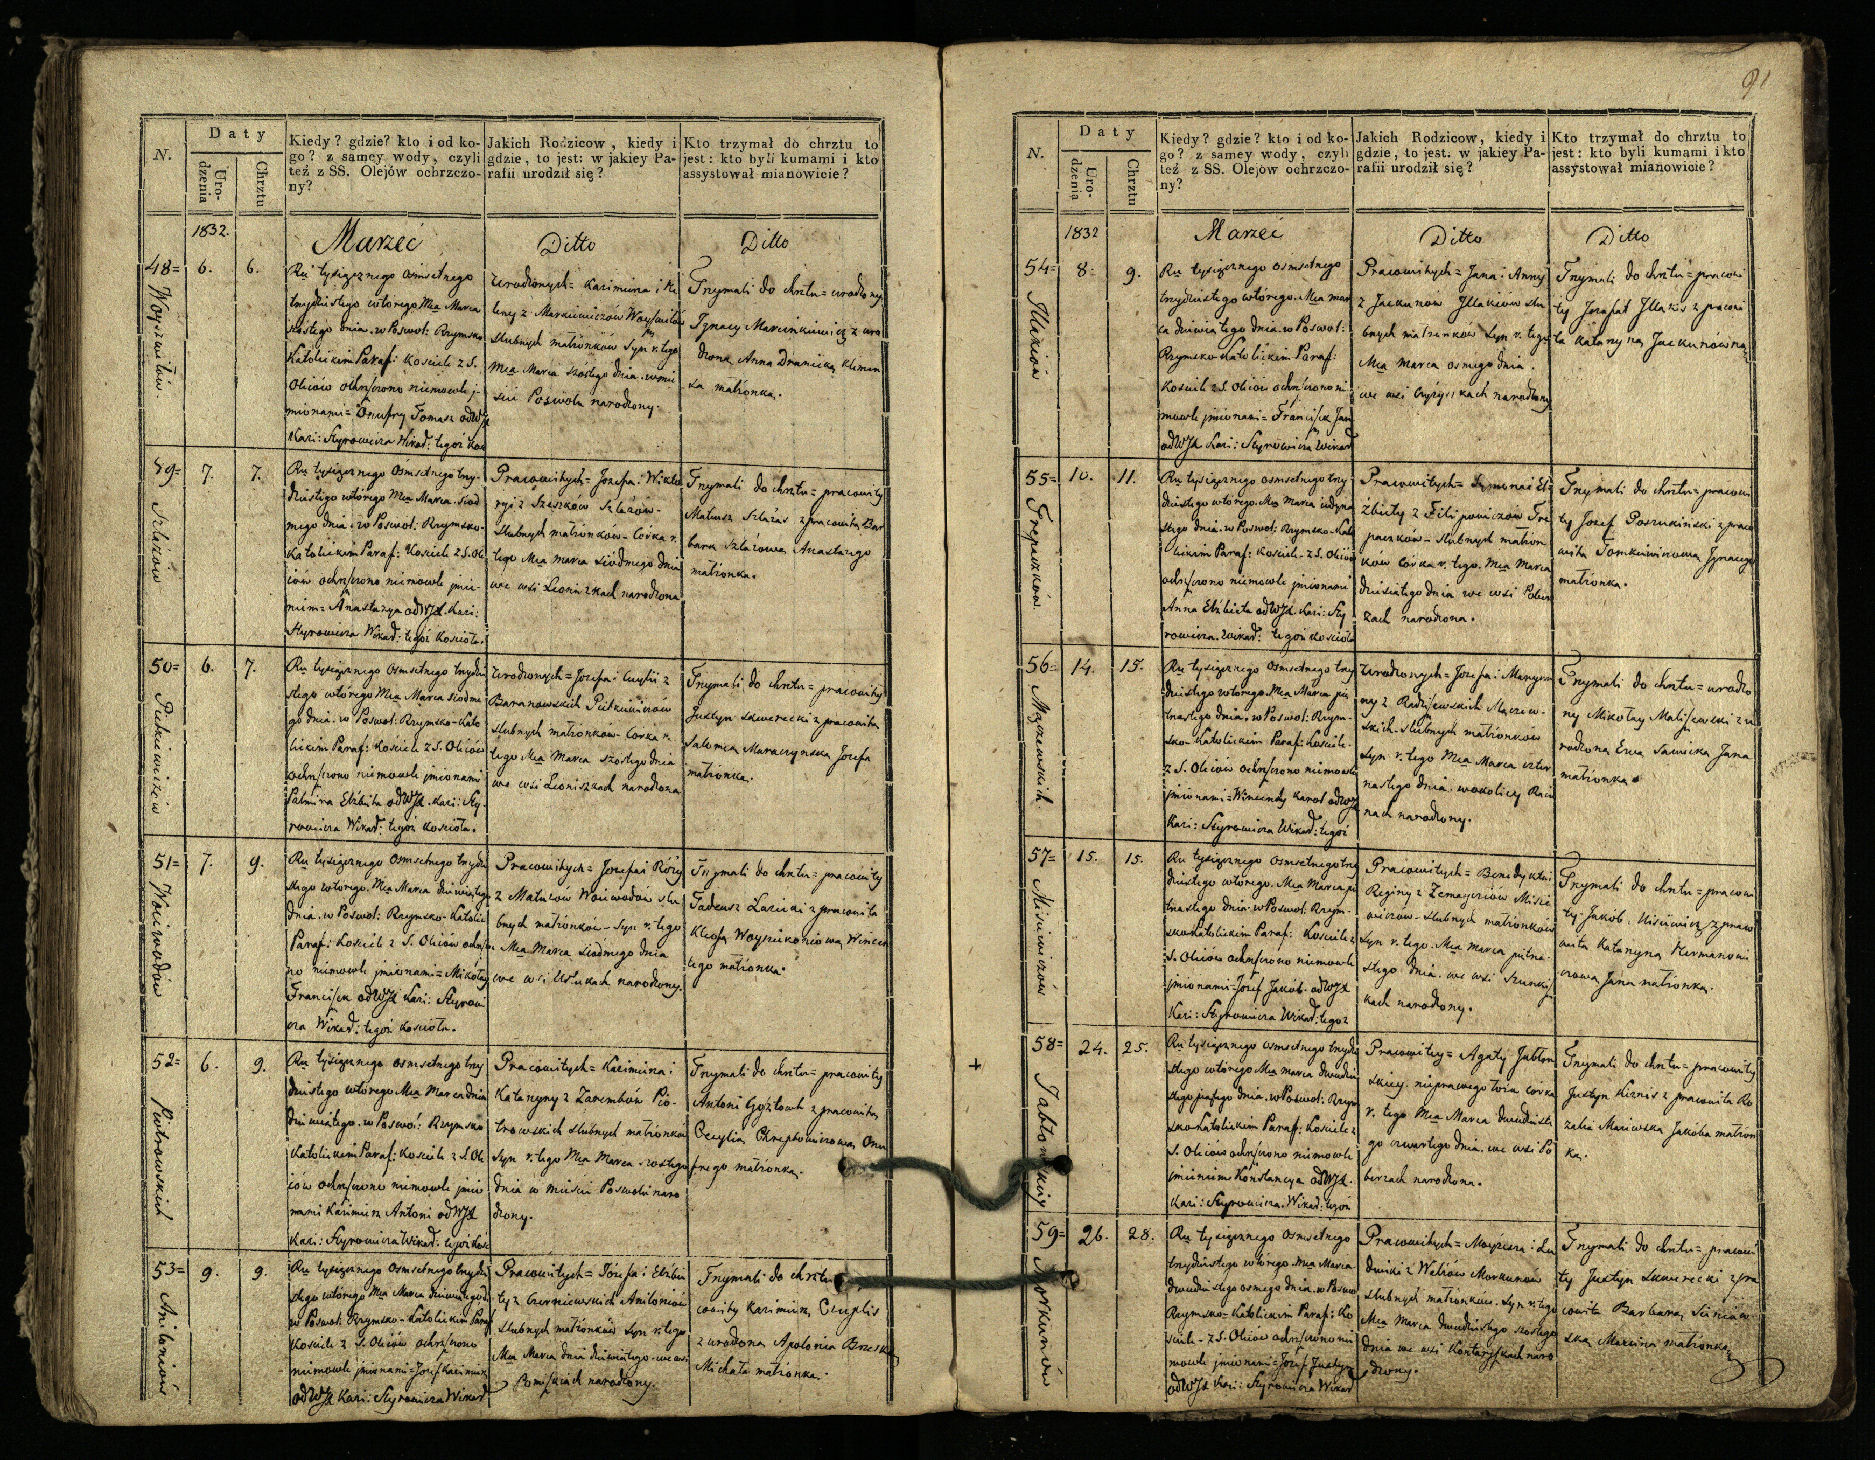 91
N.
Daty
Urodzenia
Chrztu
Kiedy? gdzie? kto i od ko-
go? z samey wody, czyli
też z SS. Olejów ochrzczo-
ny?
Jakich Rodzicow, kiedy i
gdzie, to jest: w jakiey Pa-
rafii urodził się?
Kto trzymał do chrztu to
jest: kto byli kumami i kto
assystował mianowicie?
1832.
Marzec
Ditto
Ditto
48=
Woyszwiłłów.
6.
6.
Ru tysiącznego osmsetnego
trzydziestego wtorego Mca Marca
szostego dnia w Poswol: Rzymsko
Katolickim Paraf: Kosciele z S.
Oleiow ochrzczono niemowle j-
mionami= Onufry Tomasz od WJX
Kazi: Styrowicza Wikar: tegoż Kos
Urodzonych= Kazimierza i He
leny z Markiewiczów Woyszwiłłów
slubnych małżonków Syn r. tego
Mca Marca szostego dnia w mie
scie Poswolu narodzony.
Trzymali do chrztu= urodzony
Ignacy Marcinkiewicz z uro
dzoną Anną Klemen
sa małżonką.
49=
Szlażów
7.
7.
Ru tysiącznego osmsetnego trzy-
dziestego wtorego Mca Marca siod
mego dnia w Poswol: Rzymsko-
Katolickim Paraf: Kosciele z S. Ole
iów ochrzczono niemowle jmie-
niem= Anastazya od WJX. Kazi:
Styrowicza Wikar: tegoż Koscioła.
Pracowitych= Jozefa i Wikto
ryi z Szeszków Szlażów-
slubnych małżonków- Córka r.
tego Mca Marca siódmego dnia
we wsi Leoniszkach narodzona
Trzymali do chrztu= pracowity
Mateusz Szlażas z pracowitą Bar
barą Szlażową Anastazego
małżonką.
50=
Pietkiewiczów
6.
7.
Ru tysiącznego osmsetnego trzydzie
stego wtorego Mca Marca siodme
go dnia w Poswol: Rzymsko-Kato
lickim Paraf: Kosciele z S. Oleiów
ochrzczono niemowle jmionami
Palmira Elżbieta od WJX. Kazi: Sty
rowicza Wikar: tegoż Koscioła.
Urodzonych= Jozefa i z
Baranowskich Pietkiewiczów
slubnych małżonków- Córka r.
tego Mca Marca szostego dnia
we wsi Leoniszkach narodzona
Trzymali do chrztu= pracowity
Justyn Skwerecki z pracowitą
Salomeą Jozefa
małżonką.
51=
Woiewodów
7.
9.
Ru tysiącznego osmsetnego trzydzie
stego wtorego. Mca Marca dziewiątego
dnia w Poswol: Rzymsko-Katolic
Paraf: Kosciele z S. Oleiów ochrzczo
no niemowle jmionami= Mikołay
Franciszek od WJX Kazi: Styrowi
cza Wikar: tegoż Kosciola.
Pracowitych= Jozefa i Róży
z Woiewodów slu
bnych małżonków- Syn r. tego
Mca Marca siodmego dnia
we wsi narodzony.
Trzymali do chrztu= pracowity
Tadeusz z pracowitą
Wincen
tego małżonką.
52=
Piotrowskich
6.
9.
Ru tysiącznego osmsetnego trzy
dziestego wtorego Mca Marca dnia
dziewiątego. w Poswol: Rzymsko
Katolickim Paraf: Kosciele z S. Ole
iów ochrzczono niemowle jmio
nami Kazimierz Antoni od WJX
Kazi: Styrowicza Wikar: tegoż Kosc
Pracowitych= Kazimierza i
Katarzyny z Zarembów Pio-
trowskich slubnych małżonków
Syn r. tego Mca Marca szostego
dnia w miescie Poswolu naro
dzony.
Trzymali do chrztu= pracowity
Antoni z pracowitą
Cecylią Onu
frego małżonką.
53=
Antoniow
9.
9.
Ru tysiącznego osmsetnego trzydzie
stego wtorego Mca Marca dziewiątego d.
w Poswol: Rzymsko-Katolickim Paraf
Kosciele z S. Oleiów ochrzczono
niemowle jmionami= Jozef Kazimierz
od WJX Kazi: Styrowicza Wikar
Pracowitych= Józefa i Elzbie
ty z Czerniewskich Antoniow
slubnych małżonków Syn r. tego
Mca Marca dnia dziewiątego- we wsi
narodzony.
Trzymali do chrztu
cowity Kazimierz
z urodzoną Apolonią
Michała małżonką.
N.
Daty
Urodzenia
Chrztu
Kiedy? gdzie? kto i od ko-
go? z samey wody, czyli
też z SS. Olejów ochrzczo-
ny?
Jakich Rodzicow, kiedy i
gdzie, to jest: w jakiey Pa-
rafii urodził się?
Kto trzymał do chrztu to
jest: kto byli kumami i kto
assystował mianowicie?
1832
Marzec
Ditto
Ditto
54=
Illakiów
8.
9.
Ru tysiącznego osmsetnego
trzydziestego wtórego. Mca mar
ca dziewiątego dnia w Poswol:
Rzymsko Katolickim Paraf:
Kosciele z S. Oleiów ochrzczono nie
mowle jmionami= Franciszek Jan
od WJX Kazi: Styrowicza Wikar
Pracowitych= Jana i Anny
z Jackunów Illakiów slu
bnych małżonków Syn r. tego
Mca Marca osmego dnia.
we wsi narodzony
Trzymali do chrztu= pracowi
ty Jozafat Illakis z pracowi
tą Katarzyną Jackunówną.
55=
Trepuszków
10.
11.
Ru tysiącznego osmsetnego trzy
dziestego wtorego. Mca Marca iedyna
stego dnia w Poswol: Rzymsko-Kato
lickim Paraf: Kosciele- z S. Oleiów
ochrzczono niemowle jmionami
Anna Elżbieta od WJX. Kazi: Sty
rowicza. Wikar: tegoż Kosciola
Pracowitych= Symona i El=
żbiety z Filipowiczów Tre
puszków- slubnych małżon
ków Córka r. tego. Mca Marca
dziesiątego dnia we wsi
narodzona.
Trzymali do chrztu= pracowi
ty Jozef Poszukiński z praco
witą Tomkiewiczową Ignacego
małżonką.
56=
Mączewskich
14.
15.
Ru tysiącznego osmsetnego trzy
dziestego wtorego Mca Marca pię
tnastego dnia w Poswol: Rzym-
sko-Katolickim Paraf: Kosciele-
z S. Oleiów ochrzczono niemowle
jmionami= Wincenty Karol od WJX
Kazi: Styrowicza Wikar: tegoż
Urodzonych= Jozefa i Maryan
ny z Radziszewskich Mączew-
skich- slubnych małżonków
Syn r. tego Mca Marca czter
nastego dnia. w okolicy
narodzony.
Trzymali do chrztu= urodzo
ny Mikołay Maliszewski z u
rodzoną Ewą Sawicką Jana
małżonką.
57=
Misiewiczów
15.
15.
Ru tysiącznego osmsetnego trzy
dziestego wtorego. Mca Marca pię
tnastego dnia w Poswol: Rzym-
sko Katolickim Paraf: Kosciele z
S. Oleiów ochrzczono niemowle
jmionami= Jozef Jakób. od WJX
Kazi: Styrowicza Wikar: tegoż
Pracowitych= Benedykta i
Reginy z Misie
wiczów- slubnych małżonków
Syn r. tego. Mca Marca piętna
stego dnia. we wsi
narodzony.
Trzymali do chrztu= pracowi
ty Jakób z praco
witą Katarzyną Hermanowi
czową Jana małżonką.
58=
Jabłonskiey
24.
25.
Ru tysiącznego osmsetnego trzydzie
stego wtórego Mca marca dwudzie
stego piątego dnia. w Poswol: Rzym
sko Katolickim Paraf: Kosciele z
S. Oleiów ochrzczono niemowle
jmieniem Konstancya od WJX.
Kazi: Styrowicza. Wikar: tegoż
Pracowitey= Agaty Jabłon
skiey. nieprawego łoża córka
r. tego Mca Marca dwudzieste
go czwartego dnia. we wsi
narodzona.
Trzymali do chrztu= pracowity
Justyn z pracowitą Ro
zalią Jakóba małżon
ką.
59=
Morkunów
26.
28.
Ru tysiącznego osmsetnego
trzydziestego wtorego. Mca Marca
dwudziestego osmego dnia. w Poswo
Rzymsko-Katolickim Paraf: Ko
sciele- z S. Oleiów ochrzczono nie
mowle jmionami= Jozef Justyn
od WJX Kazi: Styrowicza Wikar
Pracowitych= Mateusza i Lu
dwiki z Morkunów
slubnych małżonków. Syn r. tego
Mca Marca dwudziestego szostego
dnia we wsi naro
dzony.
Trzymali do chrztu= pracowi
ty Justyn Skwerecki z pra
cowitą Barbarą
Marcina małżonką